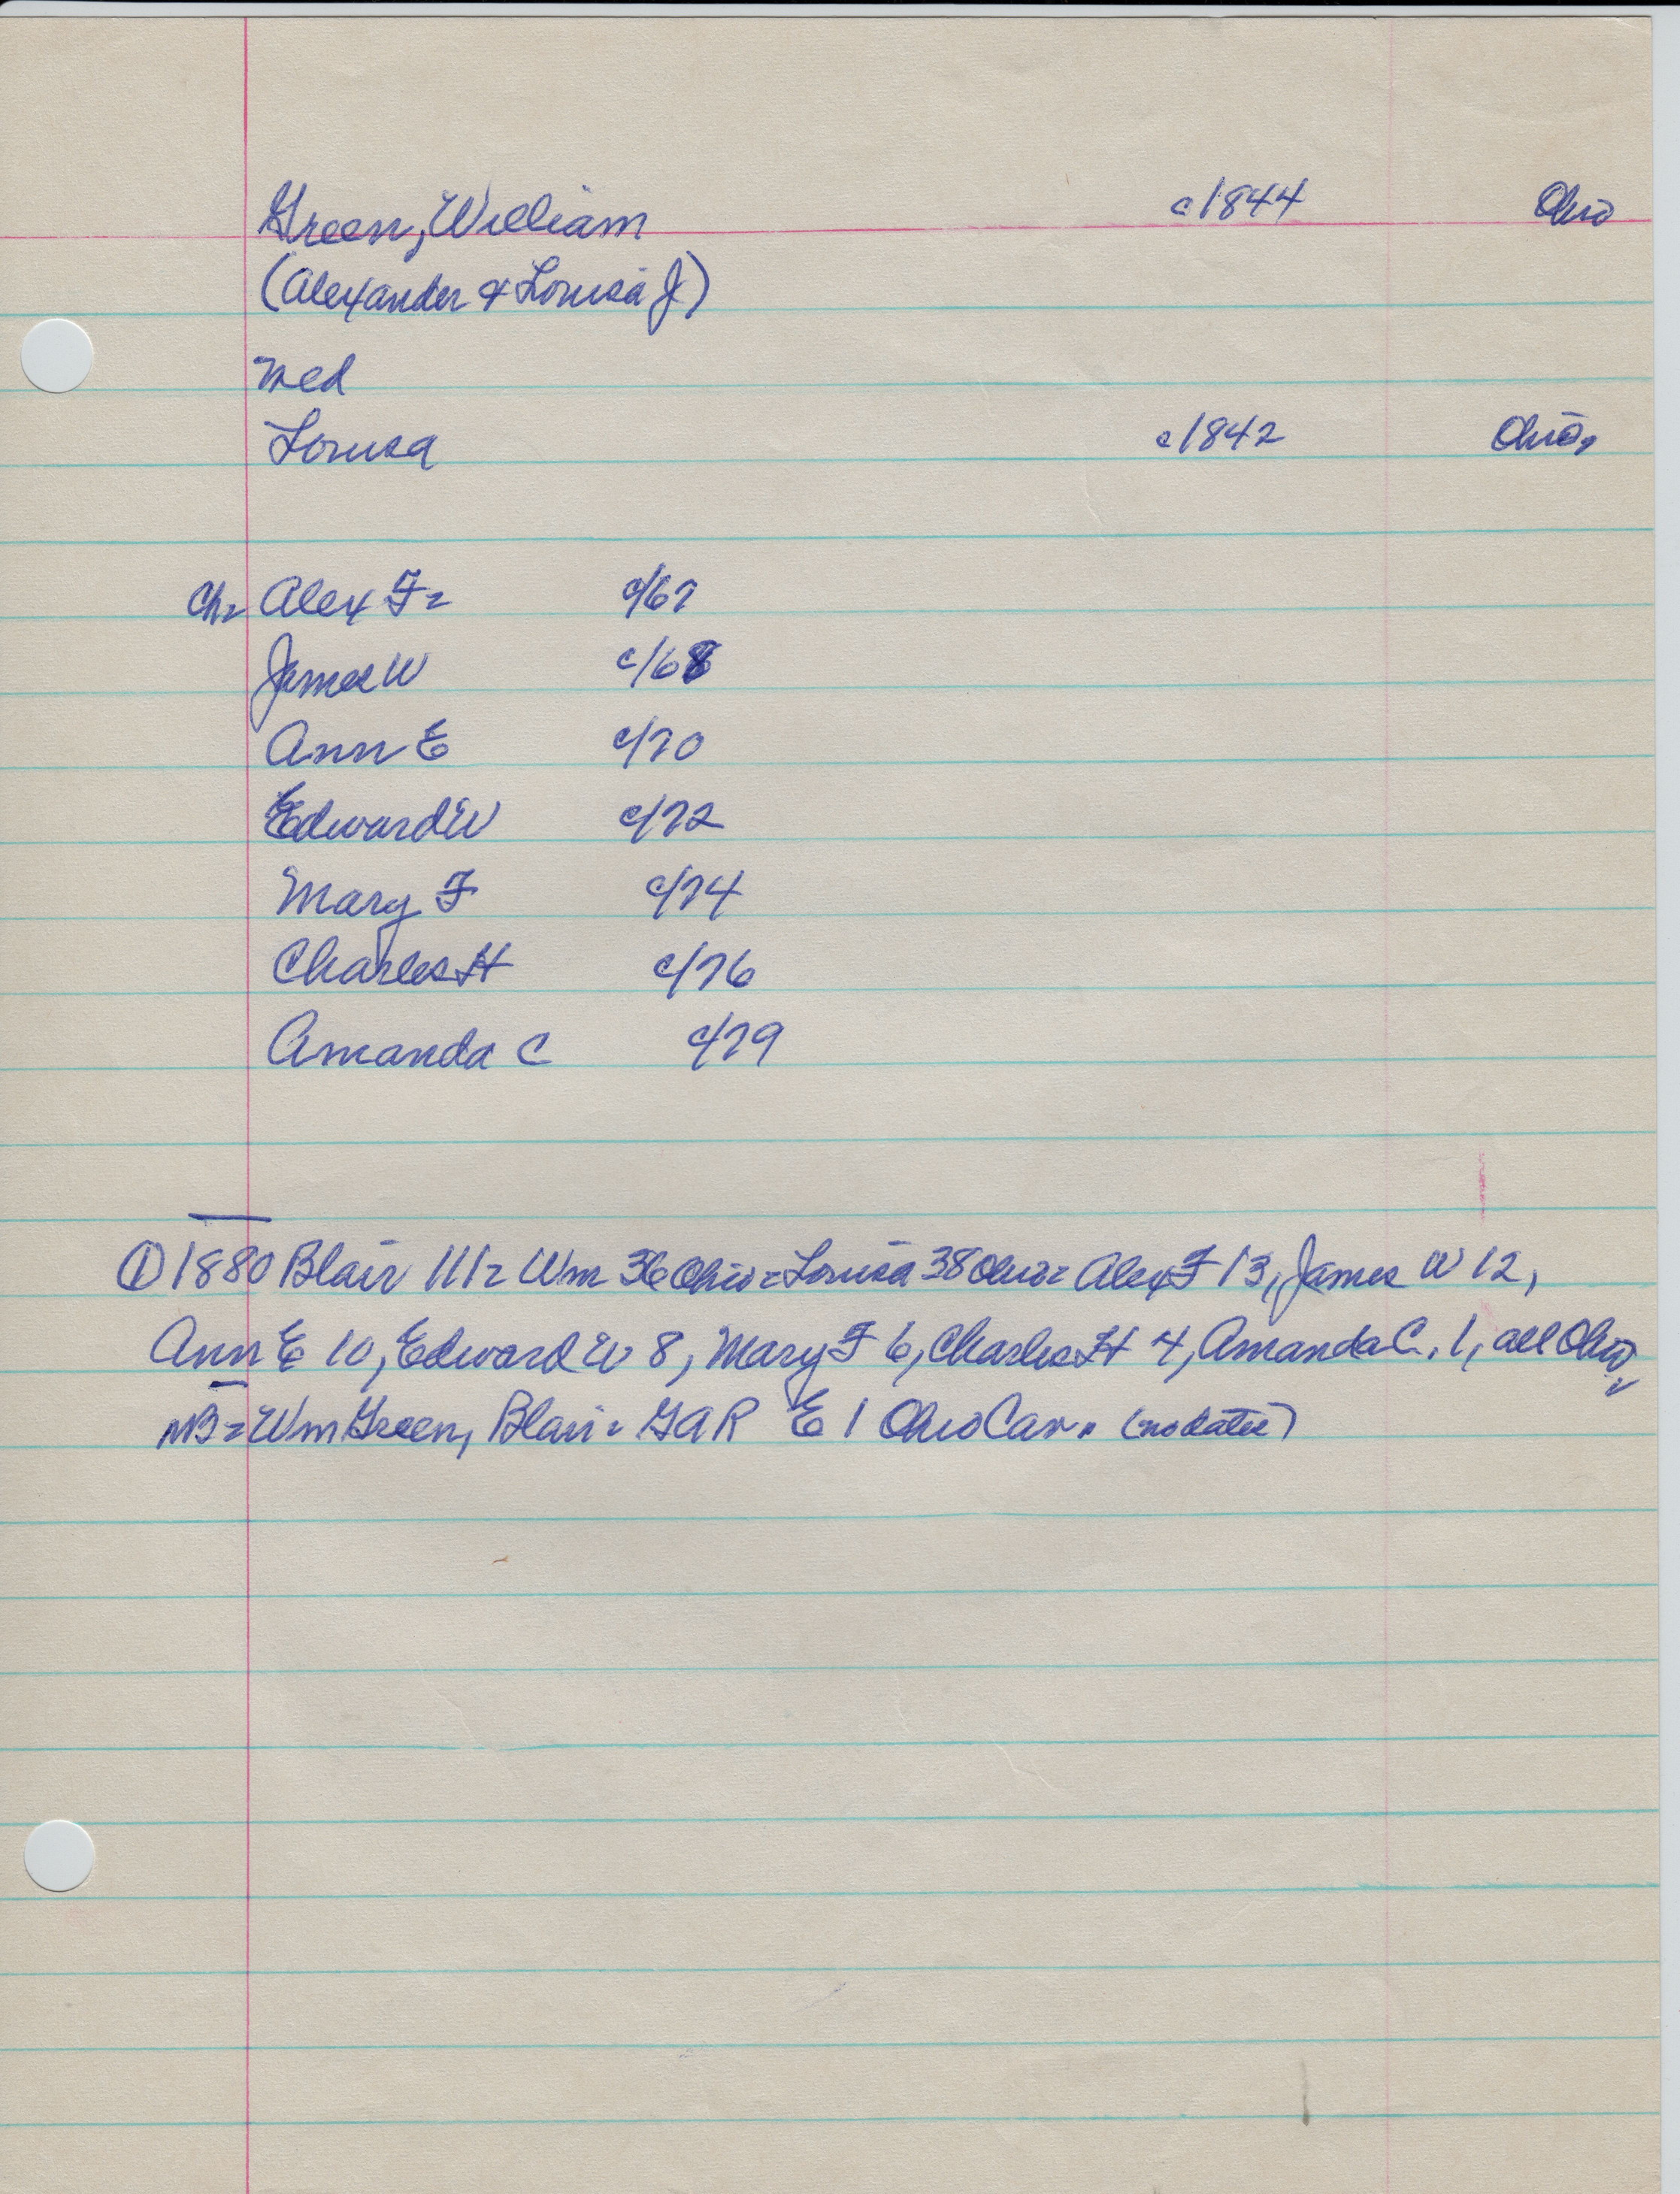 Green, William c1844 Ohio
(Alexander & Louisa J)
med
Louisa c1842 Ohio,
Ch= Alex F= c/67
James W c/68
Ann E c/70
Edward W c/72
Mary F c/74
Charles H c/76
Amanda C c/79
① 1880 Blair 111= Wm 36 Ohio= Louisa 38 Ohio= Alex F 13, James W 12,
Ann E 10, Edward W 8, Mary F 6, Charles H 4, Amanda C. 1, all Ohio,
NB= Wm Green, Blair= GAR E 1 Ohio Cav. (no date)